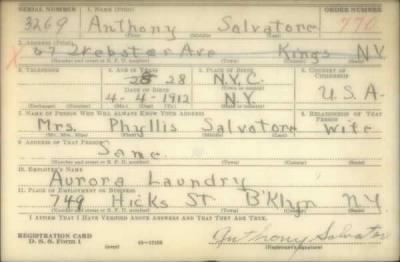 SERIAL NUMBER 1. NAME (Print) ORDER NUMBER
3269 Anthony Salvatore 770
(First) (Middle) (Last)
2. ADDRESS (Print)
67 Webster Ave Kings N.Y.
(Number and street or R. F. D. number) (Town) (County) (State)
3. TELEPHONE 4. AGE IN YEARS 5. PLACE OF BIRTH 6. COUNTRY OF CITIZENSHIP
28 28 N.Y.C.
DATE OF BIRTH (Town or county)
4-4-1912 N.Y. U.S.A.
(Exchange) (Number) (Mo.) (Day) (Yr.) (State or country)
7. NAME OF PERSON WHO WILL ALWAYS KNOW YOUR ADDRESS 8. RELATIONSHIP OF THAT PERSON
Mrs. Phyllis Salvatore Wife
(Mr., Mrs., Miss) (First) (Middle) (Last)
9. ADDRESS OF THAT PERSON
Same
(Number and street or R. F. D. number) (Town) (County) (State)
10. EMPLOYER'S NAME
Aurora Laundry
11. PLACE OF EMPLOYMENT OR BUSINESS
749 Hicks St B'klyn NY
(Number and street or R. F. D. number) (Town) (County) (State)
I AFFIRM THAT I HAVE VERIFIED ABOVE ANSWERS AND THAT THEY ARE TRUE.
REGISTRATION CARD
D. S. S. Form 1
Anthony Salvatore
(Registrant's signature)